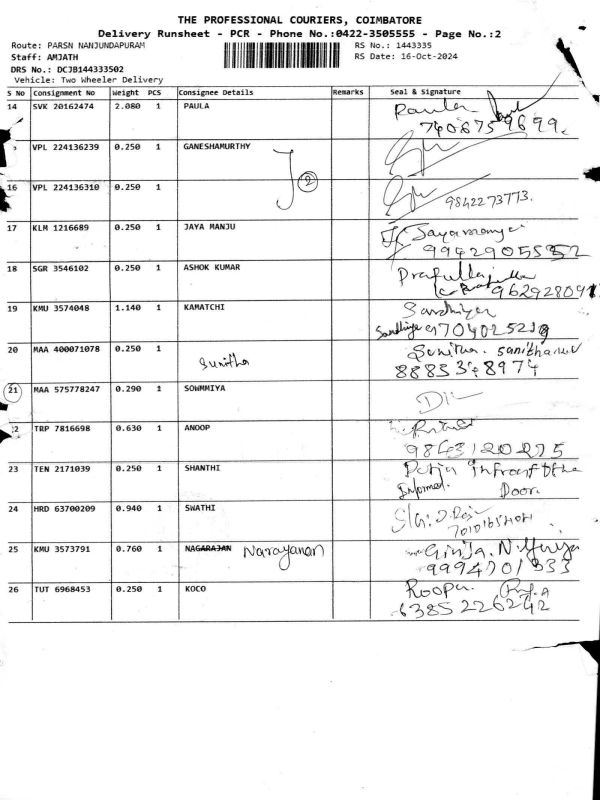 THE PROFESSIONAL COURIERS, COIMBATORE
Delivery Runsheet - PCR - Phone No.:0422-3505555 - Page No.:2
Route: PARSN NANJUNDAPURAM RS No.: 1443335
Staff: AMJATH RS Date: 16-Oct-2024
DRS No.: DCJB144333502
Vehicle: Two Wheeler Delivery
S No Consignment No Weight PCS Consignee Details Remarks Seal & Signature
14 SVK 20162474 2.080 1 PAULA Paula
7406759699
VPL 224136239 0.250 1 GANESHAMURTHY
2
16 VPL 224136310 0.250 1 9842273773.
17 KLM 1216689 0.250 1 JAYA MANJU Jayamanju
9942905552
18 SGR 3546102 0.250 1 ASHOK KUMAR Prafulla
19 KMU 3574048 1.140 1 KAMATCHI Sandhiya
Sandhiya
20 MAA 400071078 0.250 1 Sunitha Sunitha.
21 MAA 575778247 0.290 1 SOWMMIYA
22 TRP 7816698 0.630 1 ANOOP
9843120275
23 TEN 2171039 0.250 1 SHANTHI infront of the
Informed. Door.
24 HRD 63700209 0.940 1 SWATHI
25 KMU 3573791 0.760 1 NAGARAJAN Narayanan Girija.
9994701333
26 TUT 6968453 0.250 1 KOCO Roopa.
6385226242